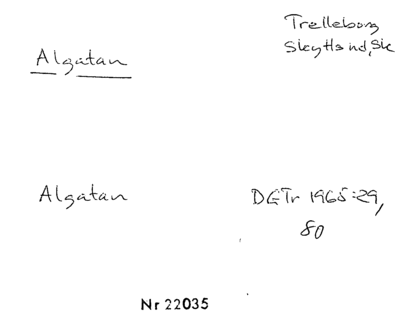 Trelleborg
Skytts hd, Sk
Algatan
Algatan
DGTr 1965:29,
80
Nr 22035